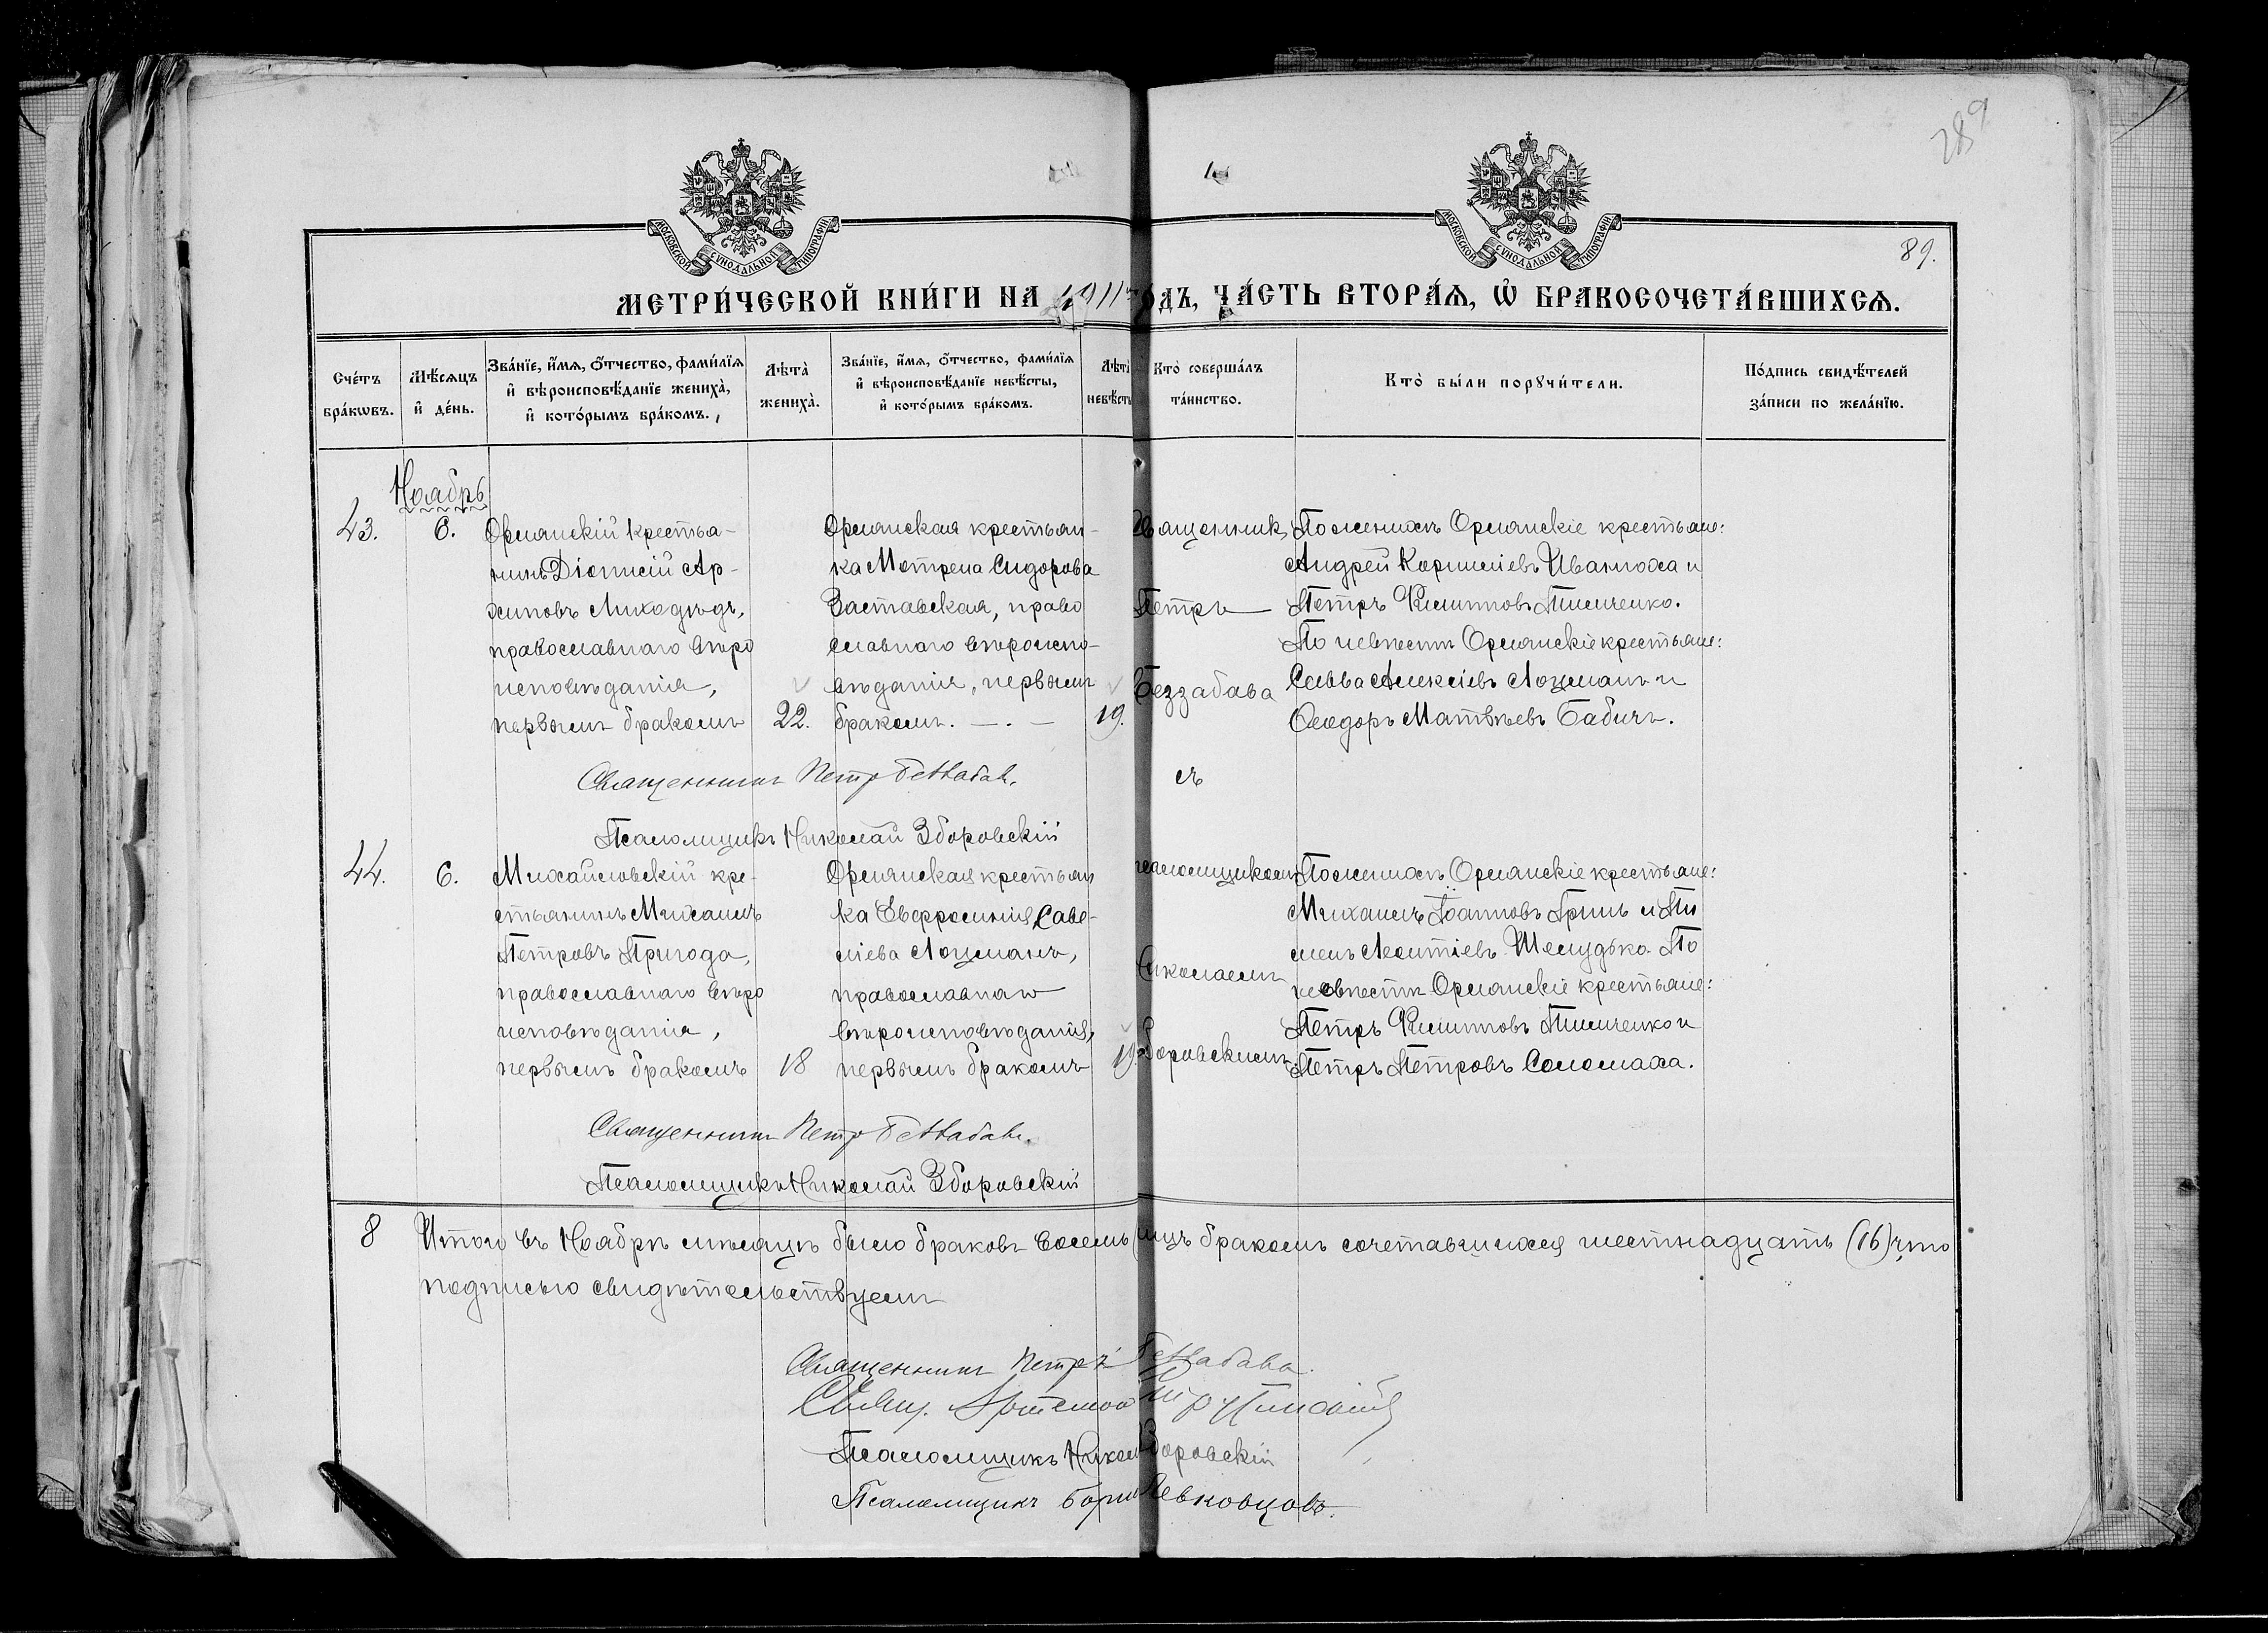 289
МОСКОВСКОЙ СѴНОДАЛЬНОЙ ТИПОГРАФІИ
МОСКОВСКОЙ СѴНОДАЛЬНОЙ ТИПОГРАФІИ
89.
МЕТРИ́ЧЕСКОЙ КНИ́ГИ НА 1911 ГОДЪ, ЧА́СТЬ ВТОРА́Я, Ѡ҆ БРАКОСОЧЕТА́ВШИХСЯ.
Сче́тъ бра́кѡвъ.
Мѣ́сяцъ и҆ де́нь.
Зва́нїе, и҆́мя, ѻ҆́тчество, фами́лїя и҆ вѣроисповѣ́данїе жениха̀, и҆ кото́рымъ бра́комъ.
Лѣ́та̀ жениха̀.
Зва́нїе, и҆́мя, ѻ҆́тчество, фами́лїя и҆ вѣроисповѣ́данїе невѣ́сты, и҆ кото́рымъ бра́комъ.
Лѣ́та̀ невѣ́сты
Кто̀ соверша́лъ та́инство.
Кто̀ бы́ли порꙋчи́тели.
По́дпись свидѣ́телей за́писи по жела́нїю.
Ноябрь
43.
6.
Орлянскій крестья-
нинъ Діонисій Ар-
хиповъ Лиходѣдъ,
православнаго вѣро
исповѣданія,
первымъ бракомъ
22.
Орлянская крестьян-
ка Мотрена Сидорова
Заставская, право
славнаго вѣроиспо-
вѣданія, первымъ
бракомъ. —.—
19.
Священникъ
Петръ
Беззабава
съ
По женихѣ Орлянскіе крестьяне:
Андрей Корниліевъ Иванюха и
Петръ Филипповъ Пимченко.
По невѣстѣ Орлянскіе крестьяне:
Савва Алексіевъ Лоцманъ и
Ѳеодоръ Матвѣевъ Бабичъ.
Священникъ Петр Беззабав.
Псаломщикъ Николай Зборовскій
44.
6.
Михайловскій кре-
стьянинъ Михаилъ
Петровъ Пригода,
православнаго вѣро
исповѣданія,
первымъ бракомъ
18
Орлянская крестьян
ка Евфросинія Саве-
ліева Лоцманъ,
православнаго
вѣроисповѣданія,
первымъ бракомъ
19.
псаломщикомъ
Николаемъ
Зборовскимъ
По женихѣ Орлянскіе крестьяне:
Михаилъ Іоанновъ Гриль и Пи
менъ Леонтіевъ Шелудько. По
невѣстѣ Орлянскіе крестьяне:
Петръ Филипповъ Пимченко и
Петръ Петровъ Соломаха.
Священникъ Петр Беззабав.
Псаломщикъ Николай Зборовскій
8
Итого въ Ноябрѣ мѣсяцѣ было браковъ восемь лицъ бракомъ сочетавшихся шестнадцать (16) что
подписью свидѣтельствуемъ
Священникъ Петръ Беззабава.
Свящ. Артемон
Псаломщикъ Никол Зборовскій
Псаломщикъ Борис Левковцовъ.